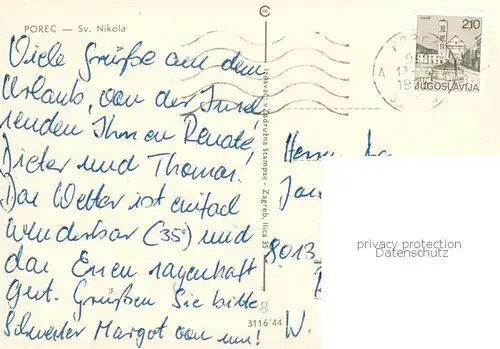 POREC — Sv. Nikola
Viele Grüße aus dem
Urlaub, von der Insel
senden Ihnen Renate,
Dieter und Thomas.
Das Wetter ist einfach
wunderbar (35°) und
das Essen sagenhaft
gut. Grüßen Sie bitte
Schwester Margot von uns!
zadružna štampa - Zagreb, Ilica 35
3116/44
2,10
JUGOSLAVIJA
Herrn
8013
W.
privacy protection
Datenschutz